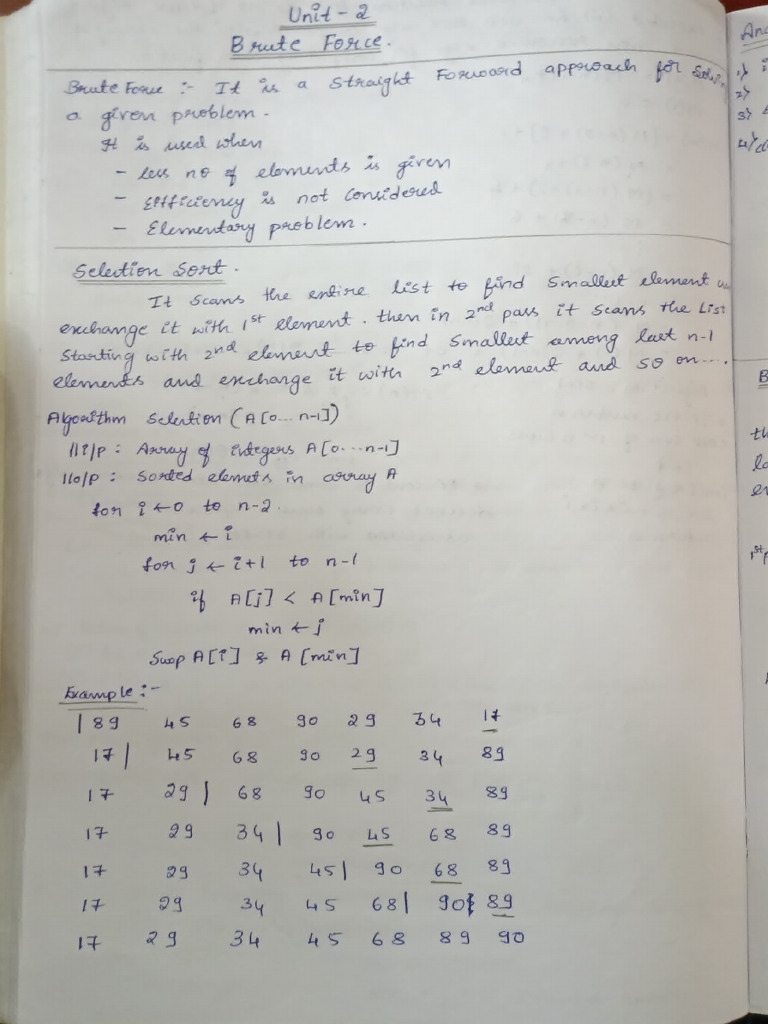 Unit - 2
Brute Force.
Brute Force :- It is a Straight Forward approach for
a given problem.
It is used when
- less no of elements is given
- Efficiency is not Considered
- Elementary problem.
Selection Sort.
It scans the entire list to find Smallest element
exchange it with 1st element. then in 2nd pass it scans the List
Starting with 2nd element to find Smallest among last n-1
elements and exchange it with 2nd element and so on....
Algorithm Selection (A[0... n-1])
//i/p : Array of integers A[0...n-1]
//o/p : Sorted elemets in array A
for i ← 0 to n-2.
min ← i
for j ← i+1 to n-1
if A[j] < A[min]
min ← j
Swap A[i] & A[min]
Example :-
| 89 45 68 90 29 34 17
17 | 45 68 90 29 34 89
17 29 | 68 90 45 34 89
17 29 34 | 90 45 68 89
17 29 34 45 | 90 68 89
17 29 34 45 68 | 90 89
17 29 34 45 68 89 90
1)
2)
3)
4)